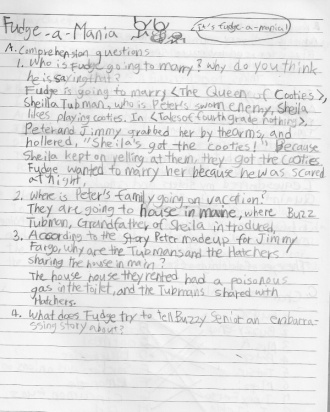 Fudge-a-Mania
It's fudge-a-mania!
A. Comprehension questions
1. Who is Fudge going to marry? Why do you think
he is saying that?
Fudge is going to marry <The Queen of Cooties>,
Sheilla Tubman, who is Peter's sworn enemy, Sheila
likes playing cooties. In <Tales of fourth grade nothing>,
Peter and Jimmy grabbed her by the arms, and
hollered, "Sheila's got the cooties!" Because
Sheila kept on yelling at them, they got the cooties.
Fudge wanted to marry her because he was scared
at night.
2. Where is Peter's family going on vacation?
They are going to house in maine, where Buzz
Tubman, Grandfather of Sheila introduced,
3. According to the story Peter made up for Jimmy
Fargo, why are the Tubmans and the Hatchers
sharing the house in main?
The house house they rented had a poisonous
gas in the toilet, and the Tubmans shared with
Hatchers.
4. What does Fudge try to tell Buzzy Senior an embarra-
ssing story about?